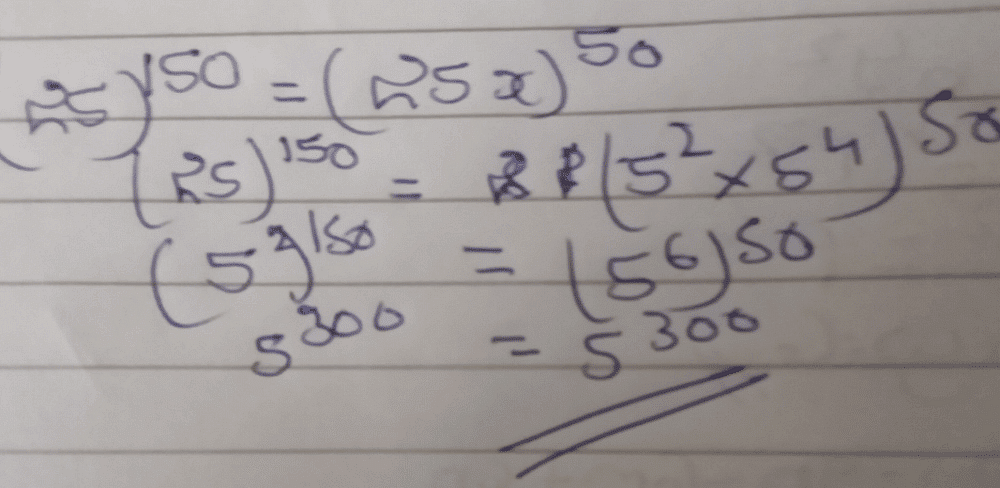 (25)^150 = (25x)^50
(25)^150 = (5^2 × 5^4)^50
(5^2)^150 = (5^6)^50
5^300 = 5^300